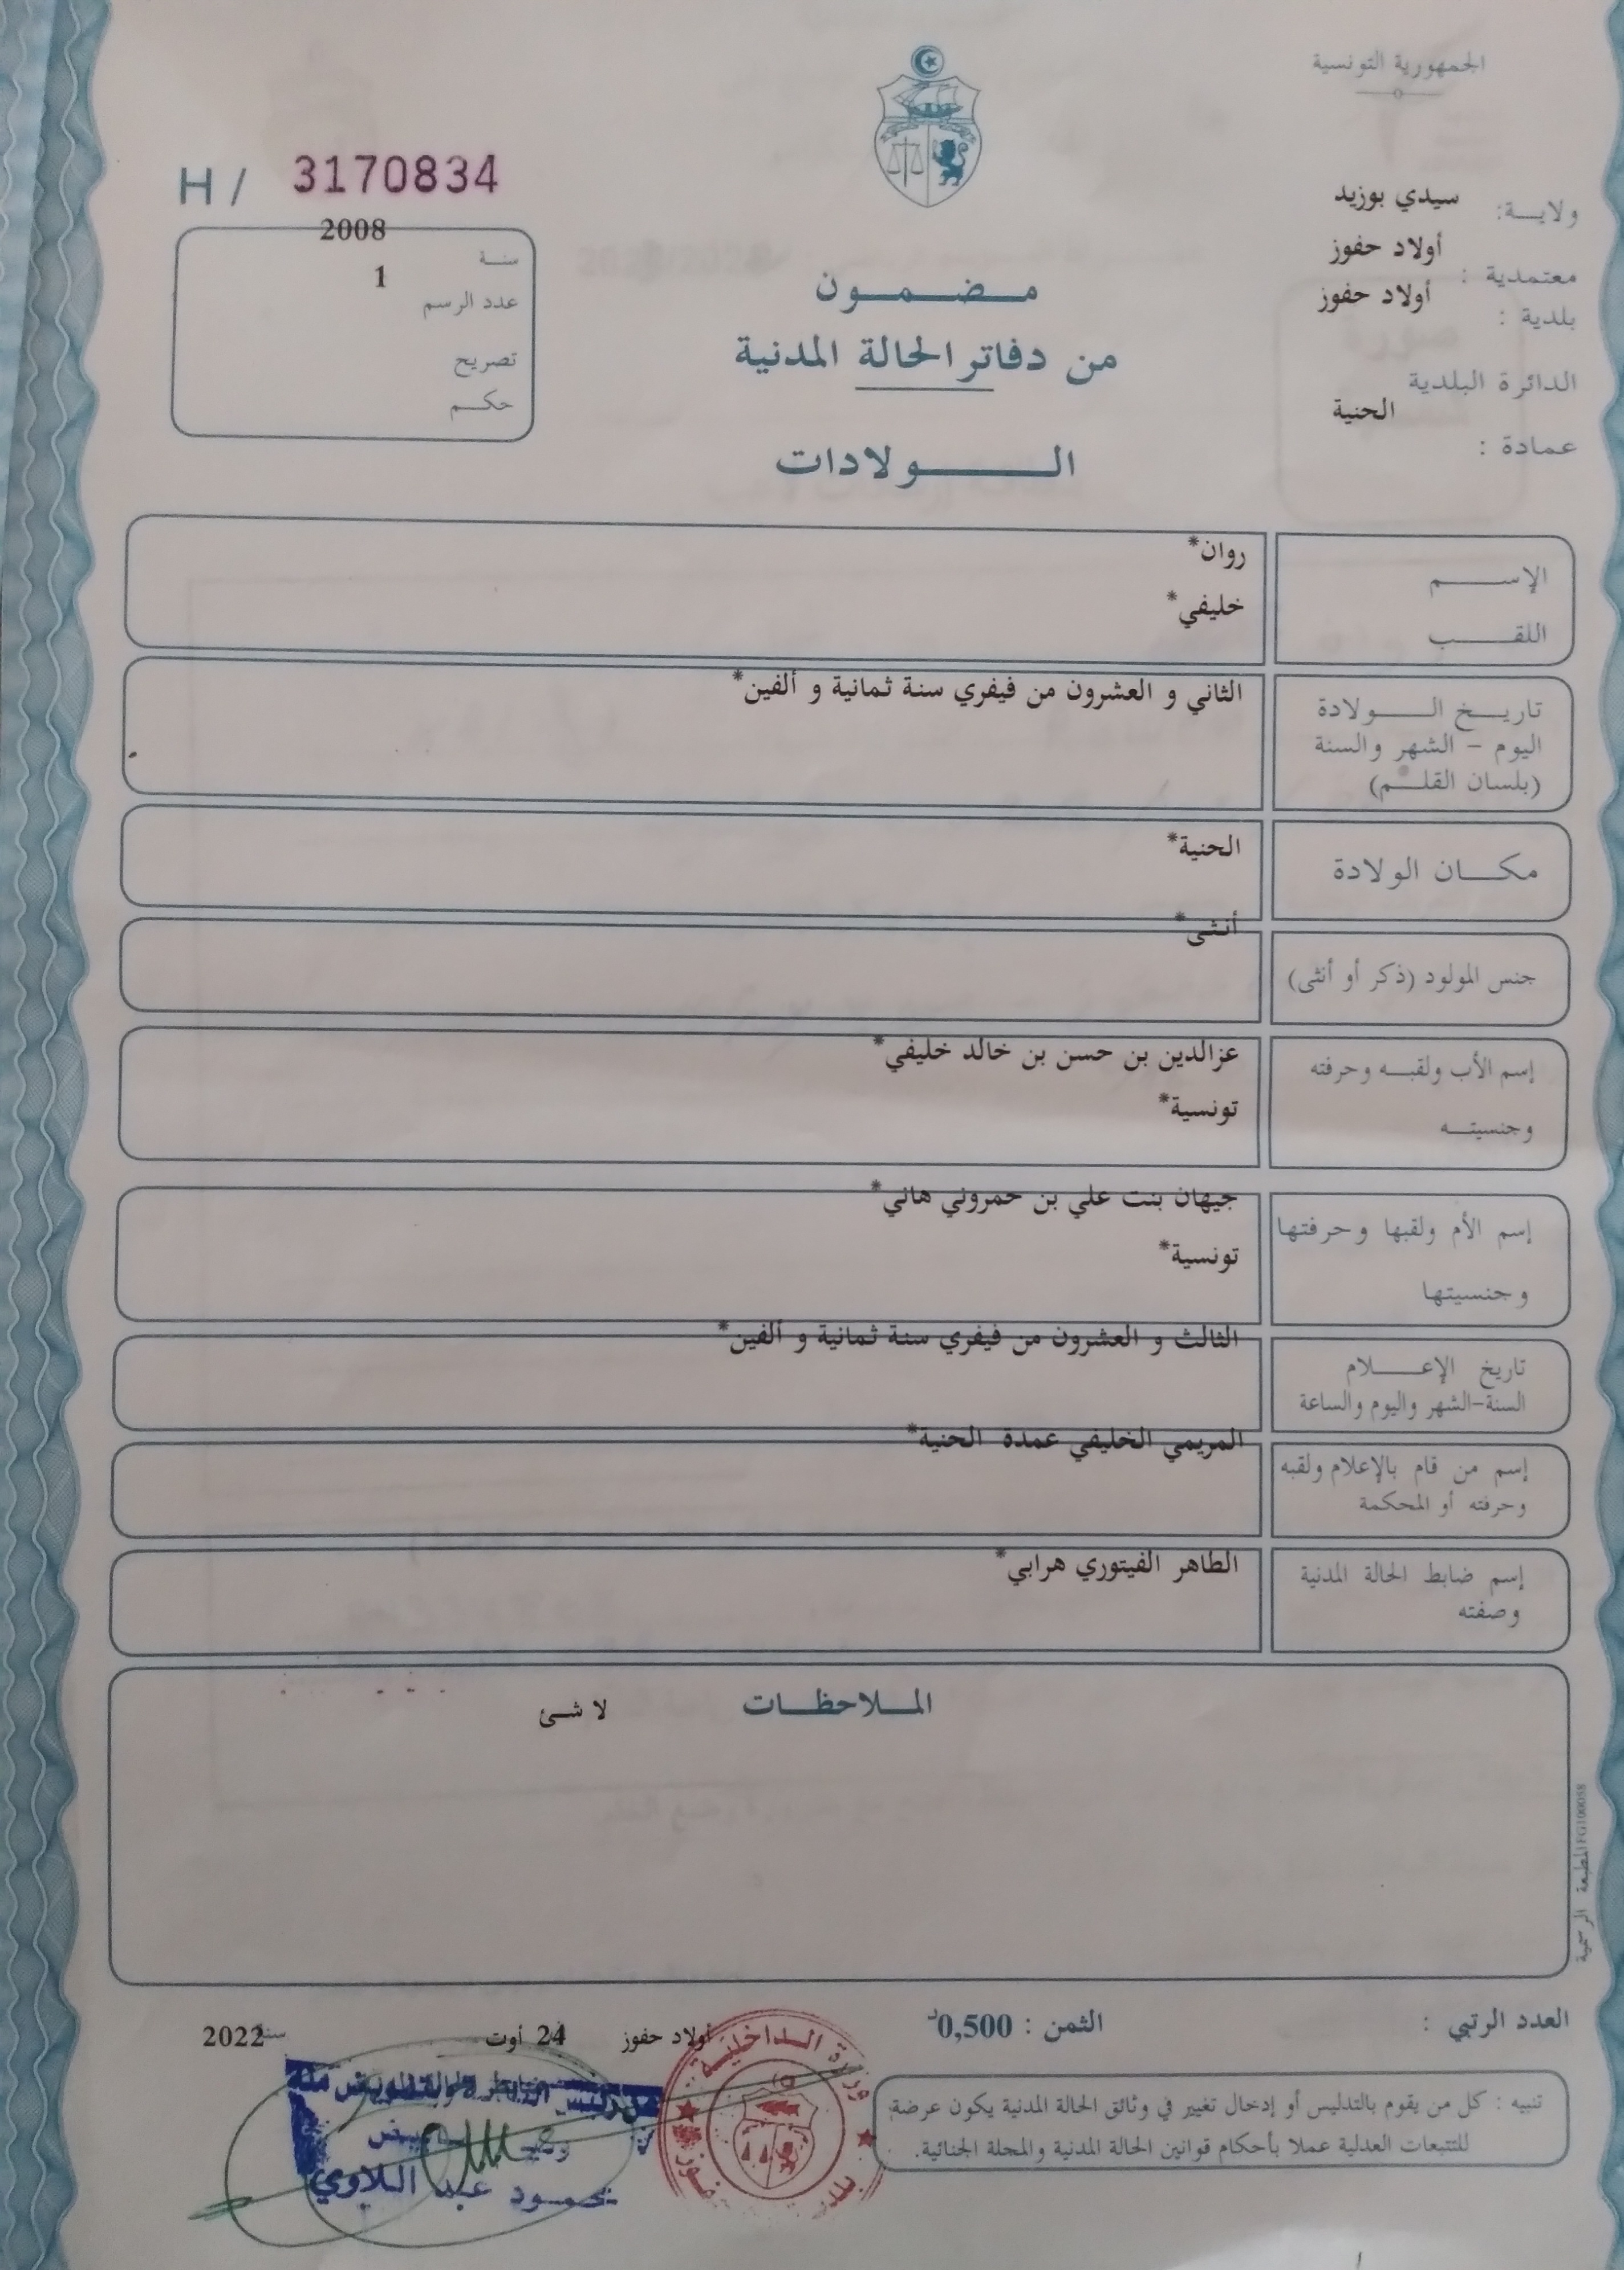 الجمهورية التونسية
ولايـــة: سيدي بوزيد
معتمدية : أولاد حفوز
بلدية : أولاد حفوز
الدائرة البلدية
عمادة : الحنية
H / 3170834
سنــة 2008
عدد الرسم 1
تصريح
حكــم
مـــضـــمـــون
من دفاتر الحالة المدنية
الـــــــولادات
الإســــــم روان*
اللقــــب خليفي*
تاريــــخ الــــــولادة الثاني و العشرون من فيفري سنة ثمانية و ألفين*
اليوم – الشهر والسنة
(بلسان القلــم)
مكـــان الولادة الحنية*
جنس المولود (ذكر أو أنثى) أنثى*
إسم الأب ولقبــه وحرفته عزالدين بن حسن بن خالد خليفي*
وجنسيتــه تونسية*
إسم الأم ولقبها وحرفتها جيهان بنت علي بن حمروني هاني*
وجنسيتها تونسية*
تاريخ الإعــــلام الثالث و العشرون من فيفري سنة ثمانية و ألفين*
السنة-الشهر واليوم والساعة
إسم من قام بالإعلام ولقبه المريمي الخليفي عمدة الحنية*
وحرفته أو المحكمة
إسم ضابط الحالة المدنية الطاهر الفيتوري هرابي*
وصفته
المــلاحظــات لا شئ
المطبعة الرسمية FG100058
العدد الرتبي :
الثمن : 0,500د
أولاد حفوز 24 أوت سنة 2022
تنبيه : كل من يقوم بالتدليس أو إدخال تغيير في وثائق الحالة المدنية يكون عرضة
للتتبعات العدلية عملا بأحكام قوانين الحالة المدنية والمجلة الجنائية.
وزارة الــداخليــة
محمــود عبد اللاوي